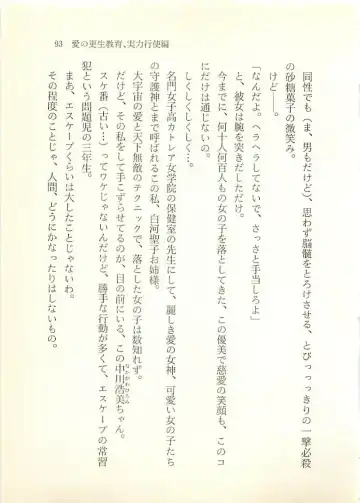 93　愛の更生教育、実力行使編
同性でも（ま、男もだけど）、思わず脳髄をとろけさせる、とびっっっきりの一撃必殺
の砂糖菓子の微笑み。
けど──。
「なんだよ。ヘラヘラしてないで、さっさと手当しろよ」
と、彼女は腕を突きだしただけ。
今までに、何十人何百人もの女の子を落としてきた、この優美で慈愛の笑顔も、このコ
にだけは通じないの。
しくしくしくしく……。
名門女子高カトレア女学院の保健室の先生にして、麗しき愛の女神、可愛い女の子たち
の守護神とまで呼ばれるこの私、白河聖子お姉様。
大宇宙の愛と天下無敵のテクニックで、落とした女の子は数知れず。
だけど、その私をして手こずらせてるのが、目の前にいる、この中川浩美ちゃん。
スケ番（古い…）ってワケじゃないんだけど、勝手な行動が多くて、エスケープの常習
犯という問題児の三年生。
まあ、エスケープくらいは大したことじゃないわ。
その程度のことじゃ、人間、どうにかなったりはしないもの。